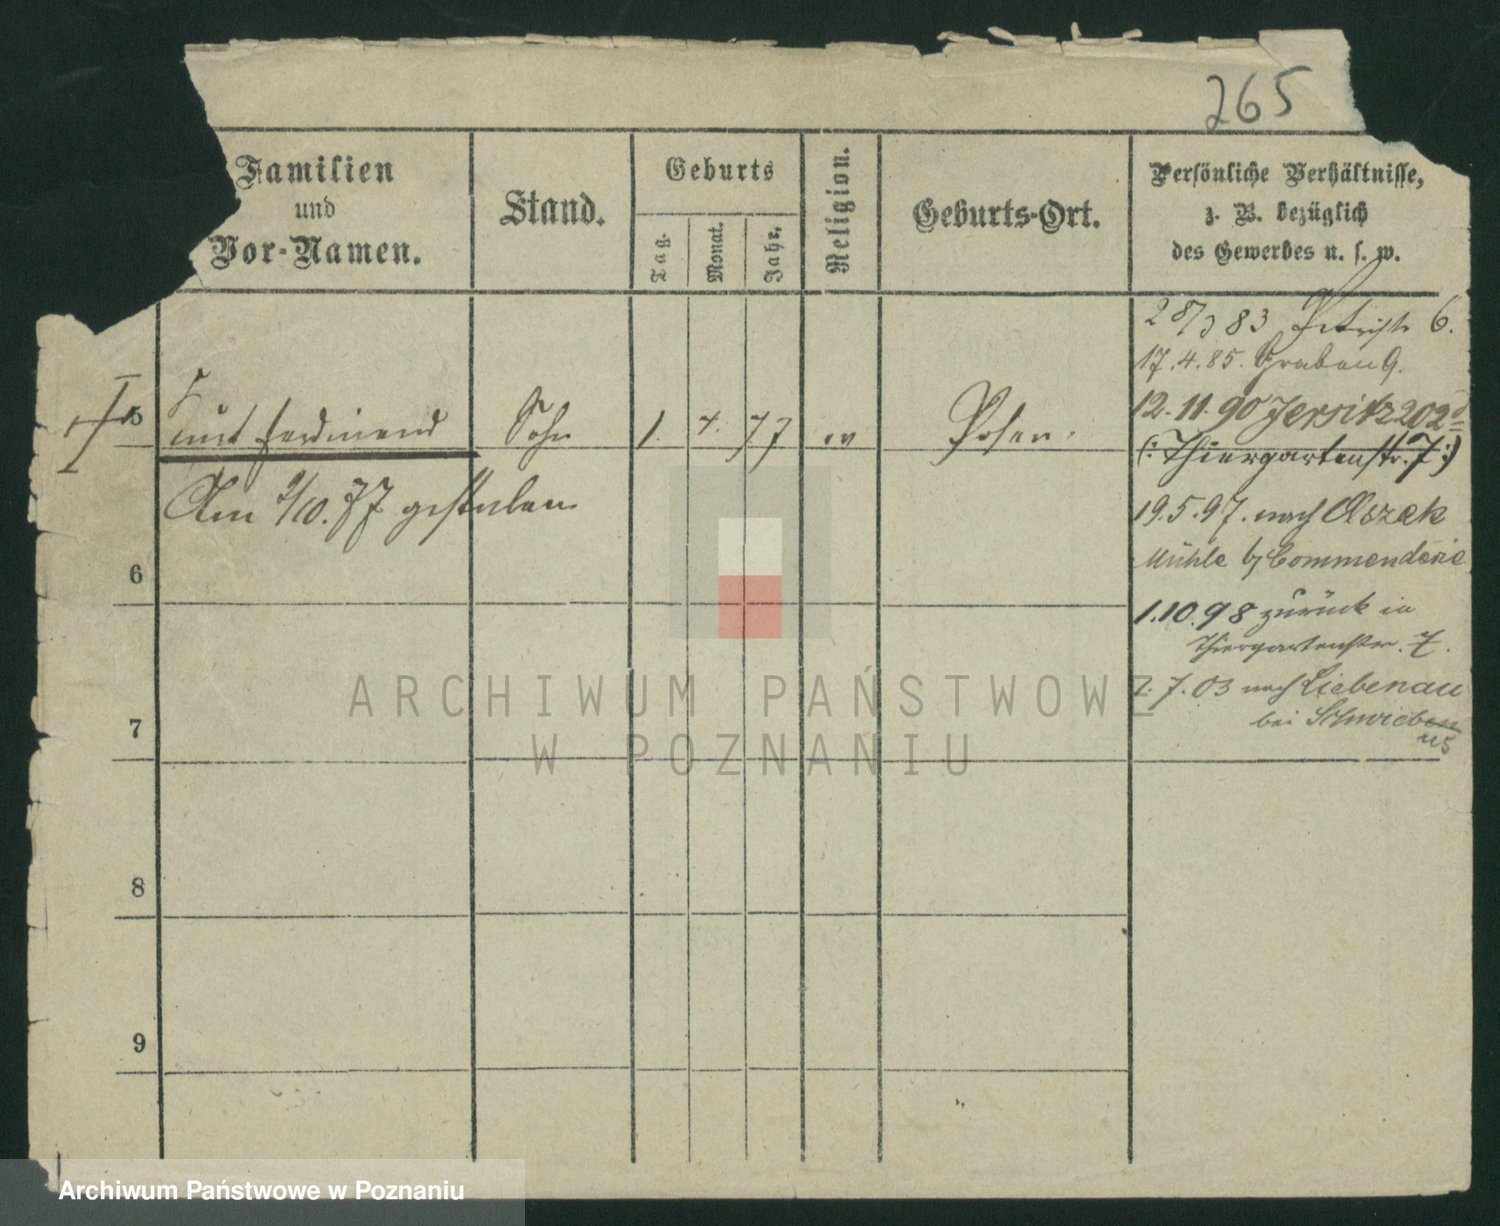 265
Familien
und
Vor-Namen.
Stand.
Geburts
Tag.
Monat.
Jahr.
Religion.
Geburts-Ort.
Persönliche Verhältnisse,
z. B. bezüglich
des Gewerbes u. s. w.
28/3 83 6.
17.4.85. Graben 9.
5 Curt Ferdinand Sohn 1. 4. 77 ev Posen.
12.11.90 Jersitz 202
(: Thiergartenstr. 7 :)
Am 9/10. 77 gestorben
19.5.97. nach Olszak
Mühle b/ Commenderie
6
1.10.98 zurück in
Thiergartenstr. 7.
7. 03 nach Liebenau
bei Schwieben
us
7
8
9
ARCHIWUM PAŃSTWOWE
W POZNANIU
Archiwum Państwowe w Poznaniu